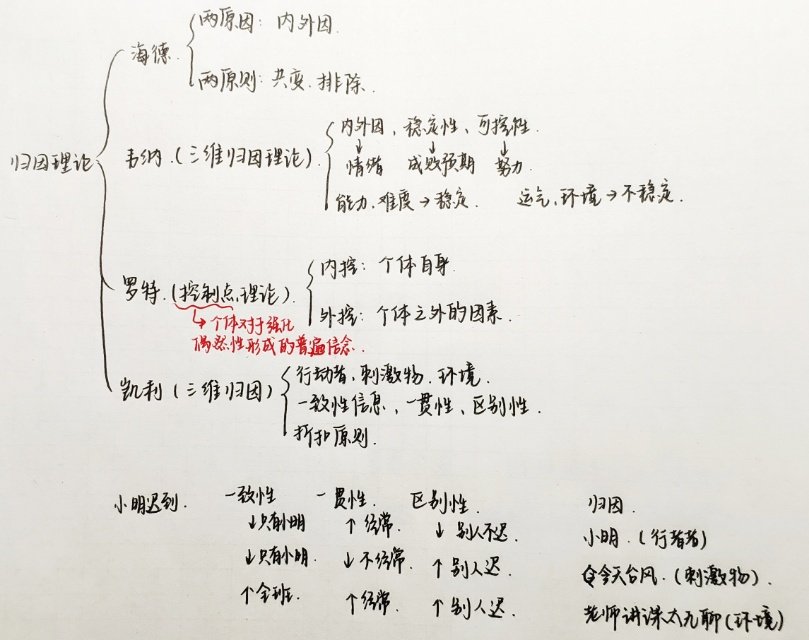 归因理论
海德
两原因：内外因.
两原则：共变、排除.
韦纳.(三维归因理论).
内外因、稳定性、可控性.
↓ ↓ ↓
情绪 成败预期 努力.
能力、难度→稳定. 运气、环境→不稳定.
罗特.(控制点理论).
↳个体对于强化
偶然性形成的普遍信念.
内控：个体自身.
外控：个体之外的因素.
凯利(三维归因)
行动者、刺激物、环境.
一致性信息、一贯性、区别性.
折扣原则.
小明迟到. 一致性 一贯性. 区别性. 归因.
↓只有小明 ↑经常. ↓别人不迟. 小明.(行者者)
↓只有小明. ↓不经常. ↑别人迟. 今天台风.(刺激物).
↑全班. ↑经常. ↑别人迟. 老师讲课太无聊(环境)